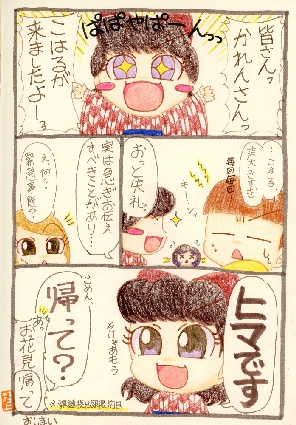 皆さんっ
かれんさんっ
ぱぱやぱーんっっ
こはるが
来ましたよー
…こはる、
毎回毎回…
キーン
おっと失礼。
実は急ぎお伝え
すべきことがあり…
え、何?
緊急事態?
ヒマです
そりゃあもう
ごめん、
帰って?
あ、
お花見帰って
おしまい